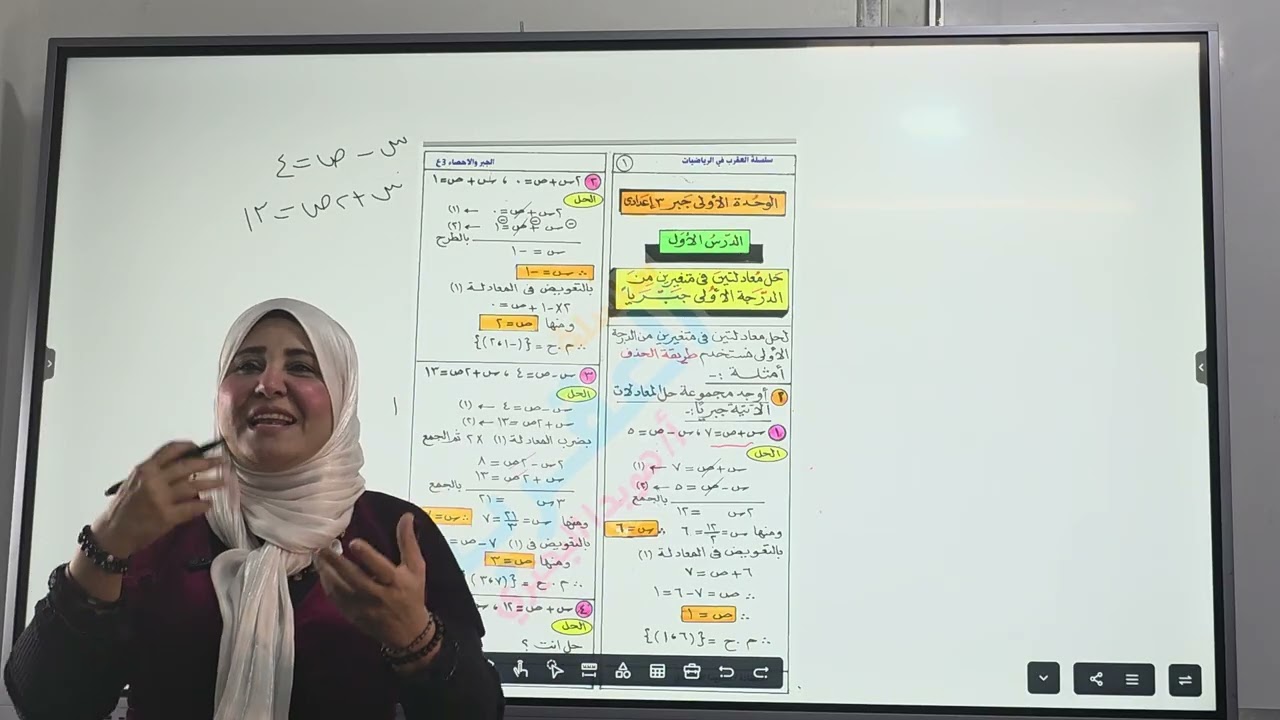 س - ص = ٤
س + ٢ص = ١٣
سلسلة العقرب في الرياضيات
١
الوحدة الأولى جبر ٣ إعدادى
الدرس الأول
حل معادلتين فى متغيرين من
الدرجة الأولى جبرياً
لحل معادلتين فى متغيرين من الدرجة
الأولى نستخدم طريقة الحذف
أمثلة :-
٢ أوجد مجموعة حل المعادلات
الآتية جبرياً :-
١ س + ص = ٧ ، س - ص = ٥
الحل
س + ص = ٧ ← (١)
س - ص = ٥ ← (٢)
بالجمع
٢س = ١٢
ومنها س = ١٢/٢ = ٦ ∴ س = ٦
بالتعويض فى المعادلة (١)
٦ + ص = ٧
∴ ص = ٧ - ٦ = ١
∴ ص = ١
∴ م . ح = {(٦ ، ١)}
الجبر والاحصاء 3ع
٢ ٢س + ص = ٠ ، س + ص = ١
الحل
٢س + ص = ٠ ← (١)
س + ص = ١ ← (٢)
بالطرح
س = -١
∴ س = -١
بالتعويض فى المعادلة (١)
٢ × -١ + ص = ٠
ومنها ص = ٢
∴ م . ح = {(-١ ، ٢)}
٣ س - ص = ٤ ، س + ٢ص = ١٣
الحل
س - ص = ٤ ← (١)
س + ٢ص = ١٣ ← (٢)
بضرب المعادلة (١) × ٢ ثم الجمع
٢س - ٢ص = ٨
س + ٢ص = ١٣
بالجمع
٣س = ٢١
ومنها س = ٢١/٣ = ٧ ∴ س =
بالتعويض فى (١) ٧ - ص =
ومنها ص = ٣
∴ م . ح = {(٧ ، ٣)
٤ س + ص = ١٢ ،
الحل
حل انت ؟